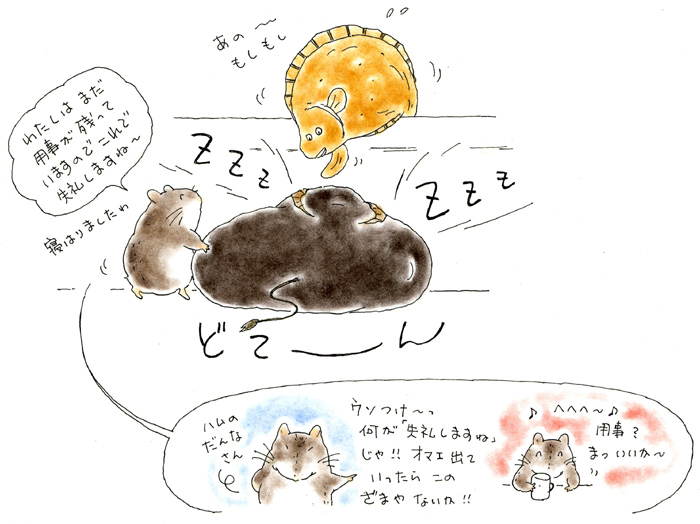 あの〜〜
もしもし
わたしは まだ
用事が 残って
いますので これで
失礼しますね〜
寝はりましたわ
Z Z Z
Z Z Z
どて――ん
ハムの
だんな
さん
ウソつけ〜っ
何が「失礼しますね」
じゃ!! オマエ 出て
いったら この
ざまや ないか!!
♪ へへへ〜♪
用事?
まっ いいか〜